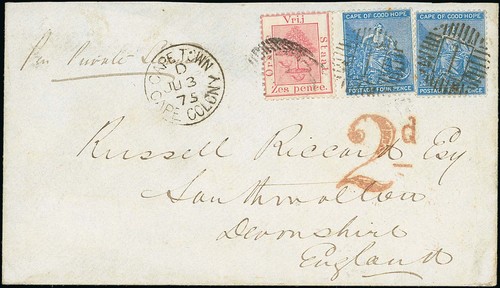 Per Private S
CAPE TOWN
D
JU 3
75
CAPE COLONY
Vrij
Oranje
Staat.
Zes pence.
CAPE OF GOOD HOPE
POSTAGE FOUR PENCE
CAPE OF GOOD HOPE
POSTAGE FOUR PENCE
2d
Russell Riccard Esq
Southmolton
Devonshire
England